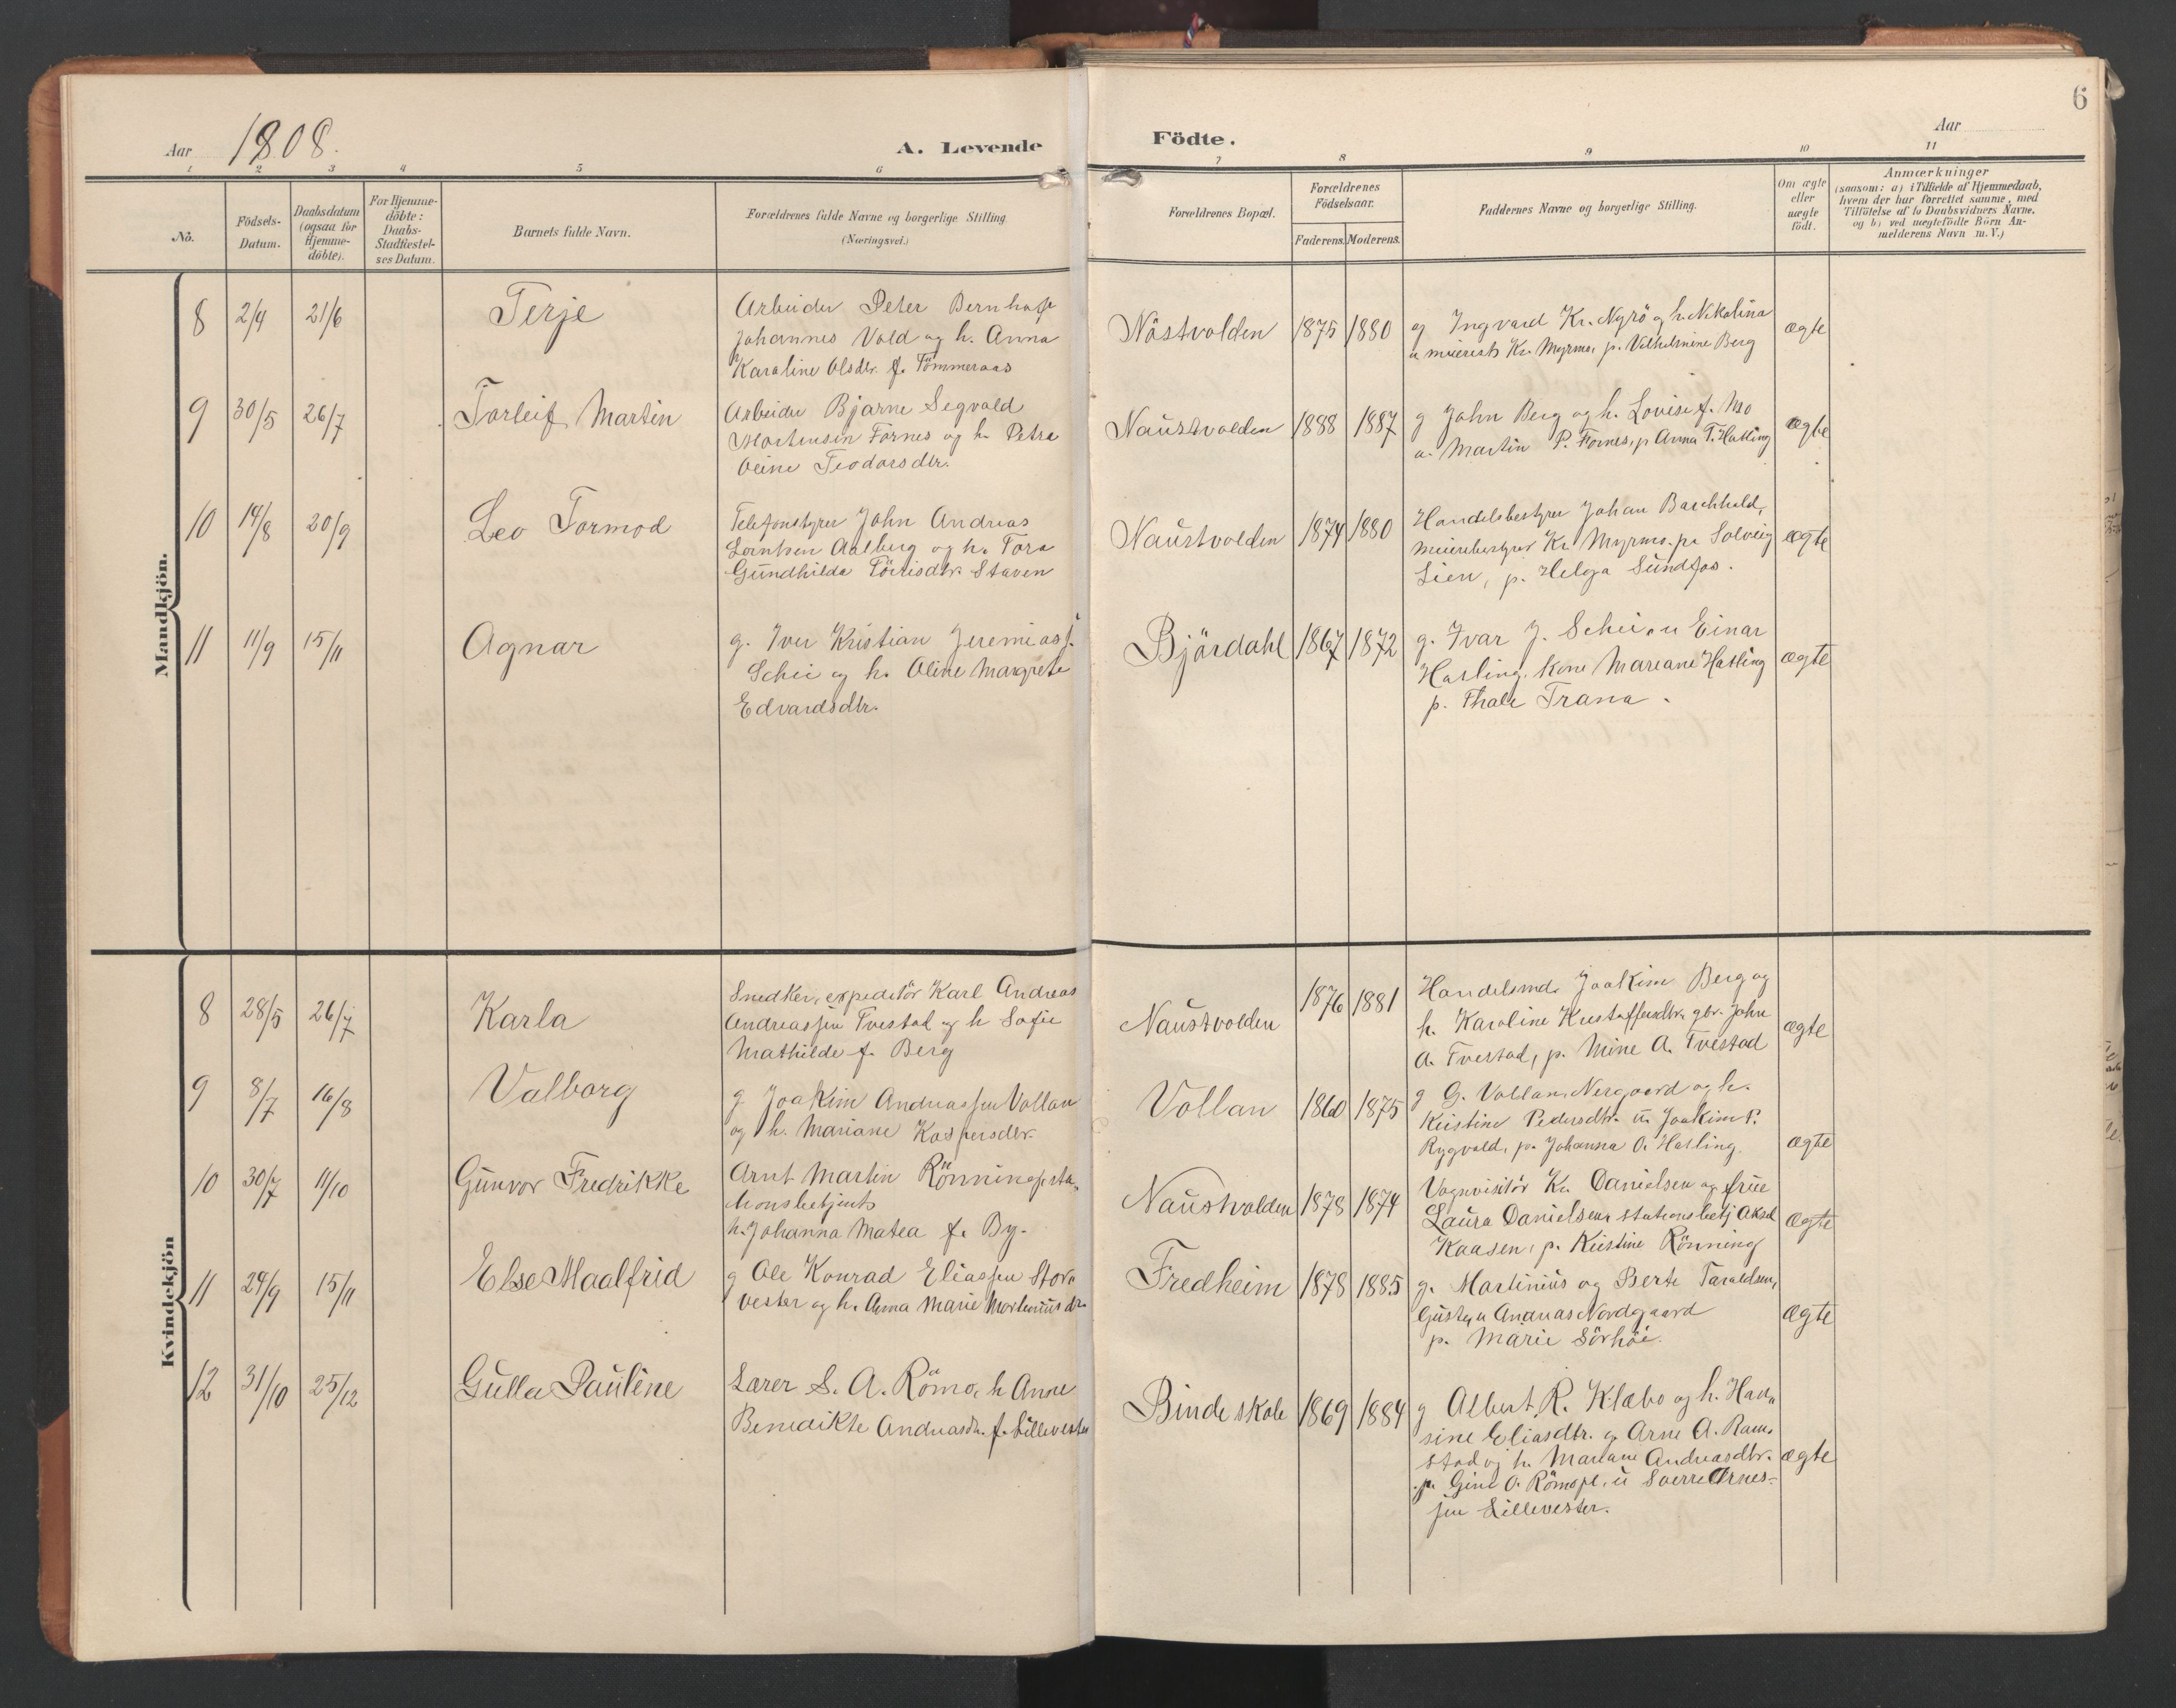 6
Aar 1908.
A. Levende
Födte.
Aar
1 2 3 4 5 6 7 8 9 10 11
No.
Födsels-
Datum.
Daabsdatum
(ogsaa for
Hjemme-
döbte).
For Hjemme-
döbte:
Daabs-
Stadfæstel-
ses Datum.
Barnets fulde Navn.
Forældrenes fulde Navne og borgerlige Stilling
(Næringsvei.)
Forældrenes Bopæl.
Forældrenes
Födselsaar.
Faderens. Moderens.
Faddernes Navne og borgerlige Stilling.
Om ægte
eller
uægte
födt.
Anmærkninger
(saasom: a) i Tilfælde af Hjemmedaab,
hvem der har forrettet samme, med
Tilföielse af to Daabsvidners Navne,
og b) ved uægtefödte Börn An-
melderens Navn m. V.)
Mandkjön.
8 2/4 21/6 Terje
Arbeider Peter Bernhof
Johannes Vold og h. Anna
Karoline Olsdtr. f. Tömmeraas
Nöstvolden 1875 1880
g Ingvard Kr. Nyrö og h. Nikolina
u meierist Kr. Myrmo, p. Vilhelmine Berg
ægte
9 30/5 26/7 Torleif Martin
Arbeider Bjarne Segvald
Mortensen Fornes og h. Petra
Oline Teodorsdtr.
Naustvolden 1888 1887
g John Berg og h. Lovise f. Mo
u. Martin P. Fornes, p Anna T. Hatling
ægte
10 14/8 20/9 Leo Tormod
Telefonstyrer John Andreas
Lorntsen Aalberg og h. Tora
Gundhilda Tönisdtr. Staven
Naustvolden 1874 1880
Handelsbestyrer Johan Barchhald,
meieribestyrer Kr. Myrmo. pr Solveig
Lien, p. Helga Sundfos.
ægte
11 11/9 15/11 Agnar
g. Iver Kristian Jeremiasf.
Schei og h. Oline Margrete
Edvardsdtr.
Björdahl 1867 1872
g. Ivar J. Schei, u Einar
Hatling. kone Mariane Hatling
p. Thale Trana.
ægte
Kvindekjön
8 28/5 26/7 Karla
Snedker, expeditör Karl Andreas
Andreassen Tvestad og h Sofie
Mathilde f. Berg
Naustvolden 1876 1881
Handelsmd. Joakim Berg og
h. Karoline Kristoffersdtr. gbr. John
A. Tvestad, p. Mine A. Tvestad
ægte
9 8/7 16/8 Valborg
g. Joakim Andreassen Vollan
og h. Mariane Kaspersdtr.
Vollan 1860 1875
g G. Vollan, Nergaard og h.
Kristine Pedersdtr. u. Joakim P.
Rygvold, p. Johanna O. Hatling.
ægte
10 30/7 11/10 Gunvor Fredrikke
Arnt Martin Rönning, sta-
tionsbetjent
h. Johanna Matea f. By.
Naustvolden 1878 1874
Vognvisitör Kr. Danielsen og frue
Laura Danielsen, stationsbetj Aksel
Kaasen, p. Kristine Rönning
ægte
11 24/9 15/11 Else Maalfrid
g Ole Konrad Eliassen Stor-
vester og h. Anna Marie Martiniusdtr.
Fredheim 1878 1885
g. Martinius og Berte Taraldsen,
Gusta, u Ananias Nordgaard
p. Marie Sörhöi.
ægte
12 31/10 25/12 Gulla Pauline
Lærer S. A. Römo, h Anne
Benedikte Andreasdtr. f. Lillevester
Binde skole 1869 1884
g Albert R. Klæbo og h. Han-
sine Eliasdtr. g. Arne A. Ram-
stad og h. Mariane Andreasdtr.
p. Gine O. Römo pl. u Sverre Arnes-
sen Lillevester.
ægte